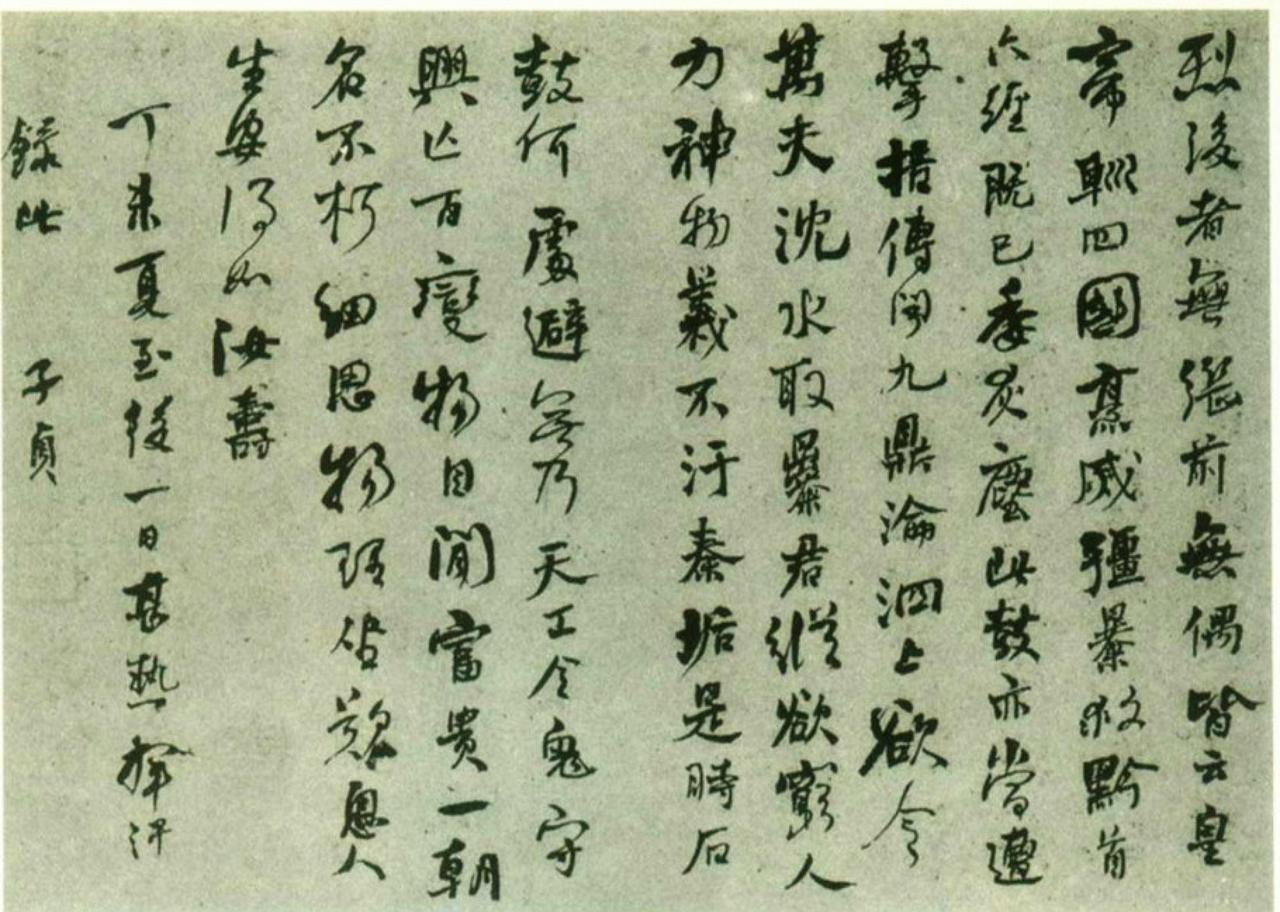 烈後者無繼前無偶皆云皇
帝巡四國烹烕疆暴救黔首
六經既已委灰塵此鼓亦當遭
擊掊傳聞九鼎淪泗上欲令
萬夫沈水取暴君縱欲窮人
力神物義不汙秦垢是時石
鼓何處避無乃天工令鬼守
興亡百變物自閒富貴一朝
名不朽細思物理坐歎息人
生安得如汝壽
丁未夏至後一日甚熱揮汗
錄此 子貞